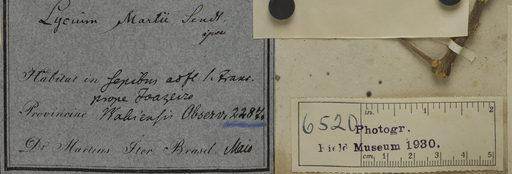 Lycium Martii Sendt.
ipse
Habitat in sepibus ad fl. S. Franc.
prope Joazeiro
Provinciae Bahiensis Observ. 2287.
Dr. Martius Iter Brasil. Maio
6520 Photogr.
Field Museum 1930.
in. 1 2
cm 1 2 3 4 5